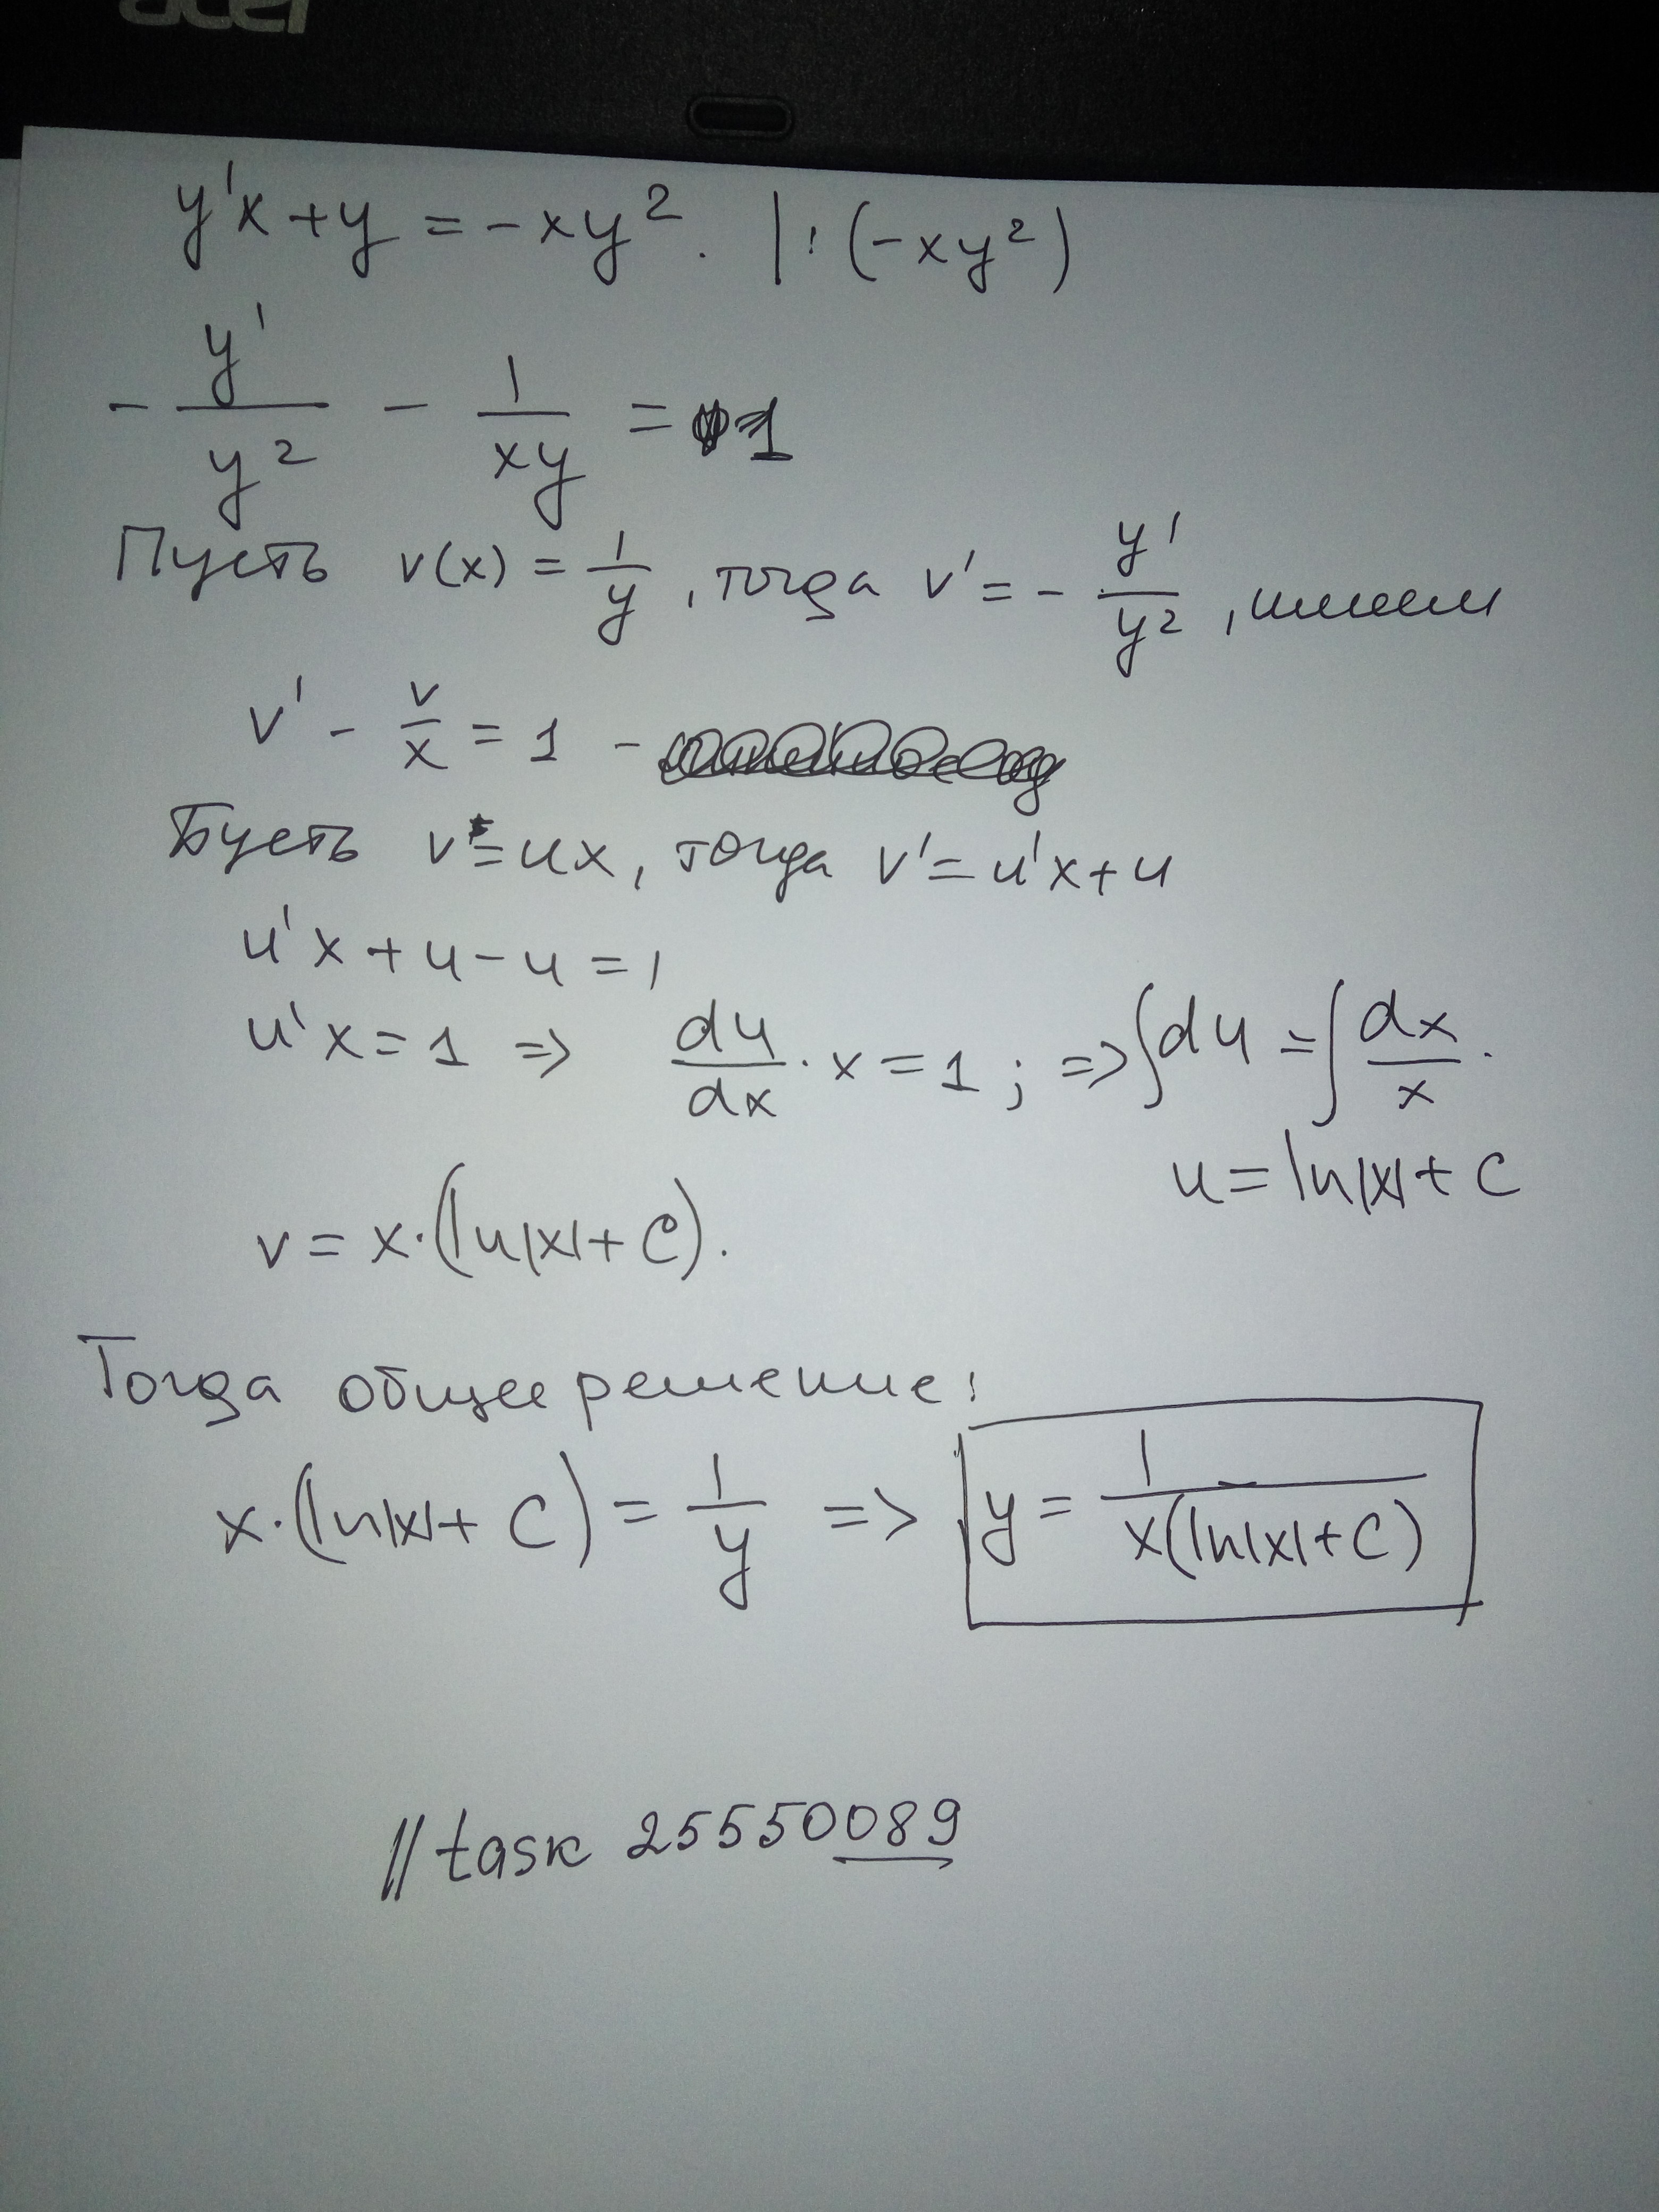 acer
y'x + y = -xy². | : (-xy²)
- y'/y² - 1/xy = 1
Пусть v(x) = 1/y, тогда v' = - y'/y², имеем
v' - v/x = 1 -
Пусть v = ux, тогда v' = u'x + u
u'x + u - u = 1
u'x = 1 => du/dx · x = 1; => ∫du = ∫dx/x.
u = ln|x| + C
v = x·(ln|x| + C).
Тогда общее решение:
x·(ln|x| + C) = 1/y => y = 1/x(ln|x| + C)
//task 25550089